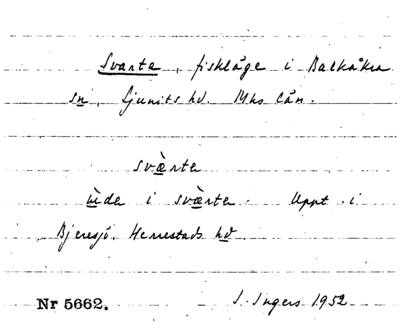 Svarta, fiskläge i Balkåkra
sn, Ljunits hd. Mhs län.
svæ̀rta
ùde i svæ̀rta. Uppt. i
Bjeresjö, Herrestads hd.
Nr 5662. I. Ingers 1952